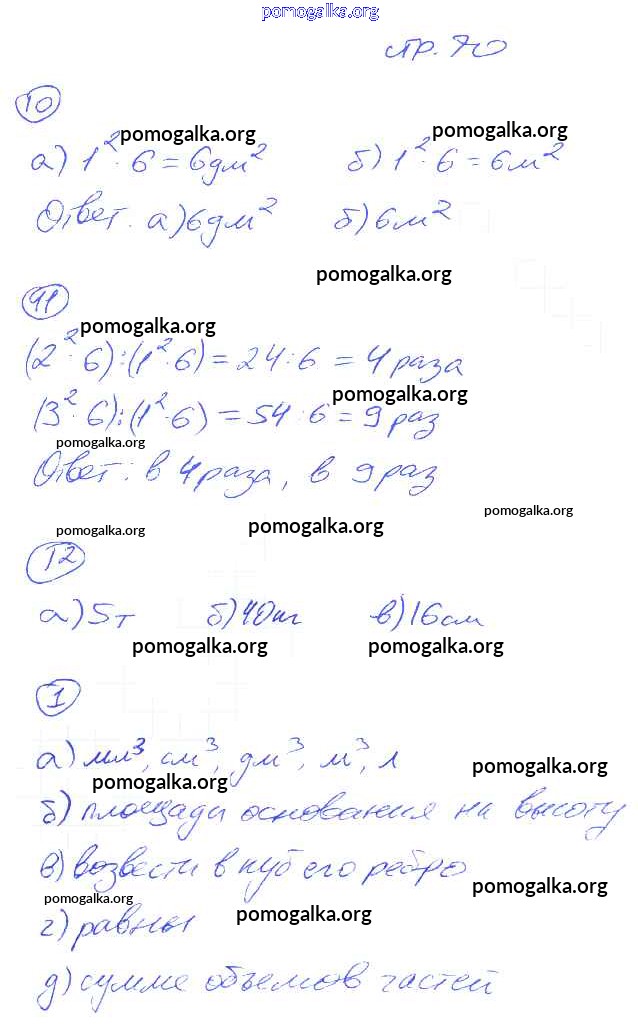 pomogalka.org
стр. 70
10
pomogalka.org pomogalka.org
а) 1² · 6 = 6 дм² б) 1² · 6 = 6 м²
Ответ. а) 6 дм² б) 6 м²
pomogalka.org
11
pomogalka.org
(2² · 6) : (1² · 6) = 24 : 6 = 4 раза
pomogalka.org
(3² · 6) : (1² · 6) = 54 : 6 = 9 раз
pomogalka.org
Ответ: в 4 раза, в 9 раз
pomogalka.org
pomogalka.org pomogalka.org
12
а) 5т б) 40 кг в) 16 см
pomogalka.org pomogalka.org
1
а) мм³, см³, дм³, м³, л
pomogalka.org pomogalka.org
б) площади основания на высоту
в) возвести в куб его ребро
pomogalka.org
pomogalka.org pomogalka.org
г) равны
д) сумме объемов частей